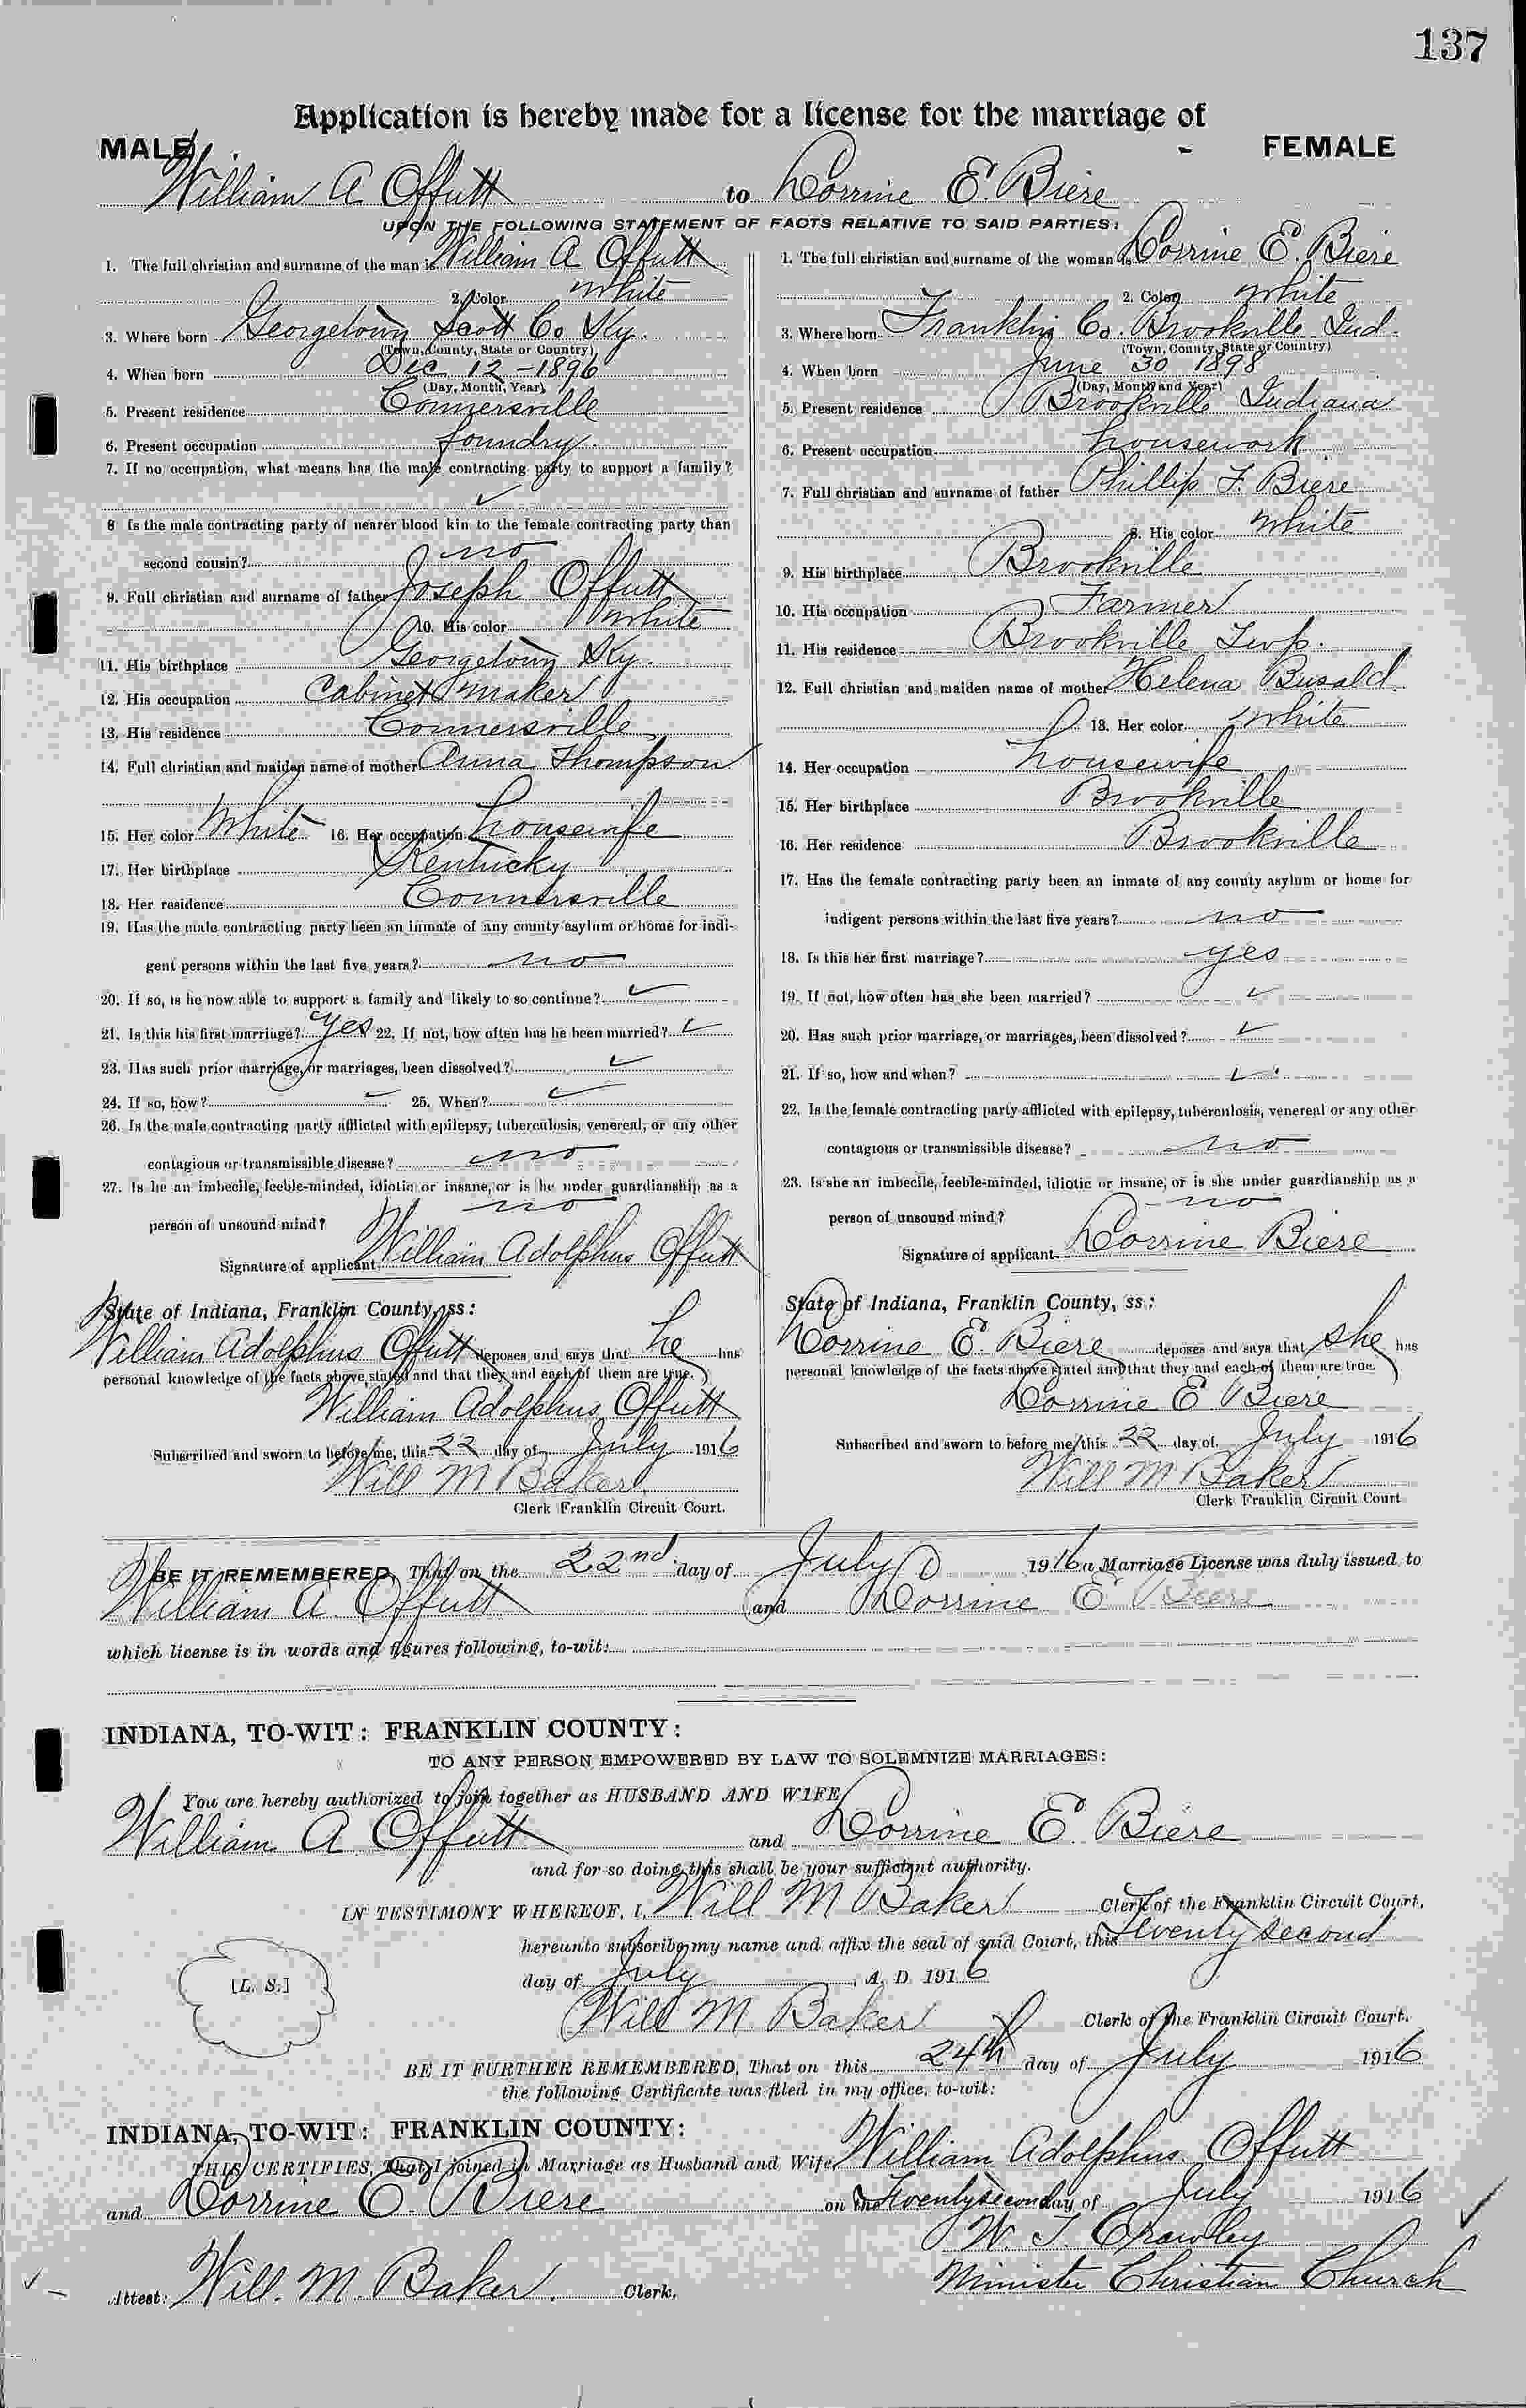 137
Application is hereby made for a license for the marriage of
MALE FEMALE
William A Offutt to Corrine E. Biere
UPON THE FOLLOWING STATEMENT OF FACTS RELATIVE TO SAID PARTIES:
1. The full christian and surname of the man is William A Offutt
2. Color White
3. Where born Georgetown Scott Co Ky.
(Town, County, State or Country)
4. When born Dec 12-1896
(Day, Month, Year)
5. Present residence Connersville
6. Present occupation foundry.
7. If no occupation, what means has the male contracting party to support a family?
✓
8 Is the male contracting party of nearer blood kin to the female contracting party than
second cousin? no
9. Full christian and surname of father Joseph Offutt
10. His color White
11. His birthplace Georgetown Ky.
12. His occupation Cabinet maker
13. His residence Connersville
14. Full christian and maiden name of mother Anna Thompson
15. Her color White 16. Her occupation housewife
17. Her birthplace Kentucky
18. Her residence Connersville
19. Has the male contracting party been an inmate of any county asylum or home for indi-
gent persons within the last five years? no
20. If so, is he now able to support a family and likely to so continue? ✓
21. Is this his first marriage? yes 22. If not, how often has he been married? ✓
23. Has such prior marriage, or marriages, been dissolved? ✓
24. If so, how? ✓ 25. When? ✓
26. Is the male contracting party afflicted with epilepsy, tuberculosis, venereal, or any other
contagious or transmissible disease? no
27. Is he an imbecile, feeble-minded, idiotic or insane, or is he under guardianship as a
person of unsound mind? no
Signature of applicant William Adolphus Offutt
State of Indiana, Franklin County, ss:
William Adolphus Offutt deposes and says that he has
personal knowledge of the facts above stated and that they and each of them are true.
William Adolphus Offutt
Subscribed and sworn to before me, this 22 day of July 1916
Will M Baker
Clerk Franklin Circuit Court.
1. The full christian and surname of the woman is Corrine E. Biere
2. Color White
3. Where born Franklin Co. Brookville Ind.
(Town, County, State or Country)
4. When born June 30 1898
(Day, Month and Year)
5. Present residence Brookville Indiana
6. Present occupation housework
7. Full christian and surname of father Phillip F. Biere
8. His color White
9. His birthplace Brookville
10. His occupation Farmer
11. His residence Brookville Twp.
12. Full christian and maiden name of mother Helena Busald
13. Her color White
14. Her occupation housewife
15. Her birthplace Brookville
16. Her residence Brookville
17. Has the female contracting party been an inmate of any county asylum or home for
indigent persons within the last five years? no
18. Is this her first marriage? yes
19. If not, how often has she been married? ✓
20. Has such prior marriage, or marriages, been dissolved? ✓
21. If so, how and when? ✓
22. Is the female contracting party afflicted with epilepsy, tuberculosis, venereal or any other
contagious or transmissible disease? no
23. Is she an imbecile, feeble-minded, idiotic or insane, or is she under guardianship as a
person of unsound mind? no
Signature of applicant Corrine Biere
State of Indiana, Franklin County, ss:
Corrine E. Biere deposes and says that she has
personal knowledge of the facts above stated and that they and each of them are true
Corrine E Biere
Subscribed and sworn to before me, this 22 day of July 1916
Will M Baker
Clerk Franklin Circuit Court
BE IT REMEMBERED, That on the 22nd day of July 1916 a Marriage License was duly issued to
William A Offutt and Corrine E Biere
which license is in words and figures following, to-wit:
INDIANA, TO-WIT: FRANKLIN COUNTY:
TO ANY PERSON EMPOWERED BY LAW TO SOLEMNIZE MARRIAGES:
You are hereby authorized to join together as HUSBAND AND WIFE
William A Offutt and Corrine E. Biere
and for so doing this shall be your sufficient authority.
IN TESTIMONY WHEREOF, I, Will M Baker Clerk of the Franklin Circuit Court,
hereunto subscribe my name and affix the seal of said Court, this Twenty second
[L. S.]
day of July, A. D. 1916
Will M Baker Clerk of the Franklin Circuit Court.
BE IT FURTHER REMEMBERED, That on this 24th day of July 1916
the following Certificate was filed in my office, to-wit:
INDIANA, TO-WIT: FRANKLIN COUNTY:
THIS CERTIFIES, That I joined in Marriage as Husband and Wife William Adolphus Offutt
and Corrine E. Biere on the Twenty second day of July 1916
W. T. Crowley
Minister Christian Church
Attest: Will. M. Baker. Clerk.